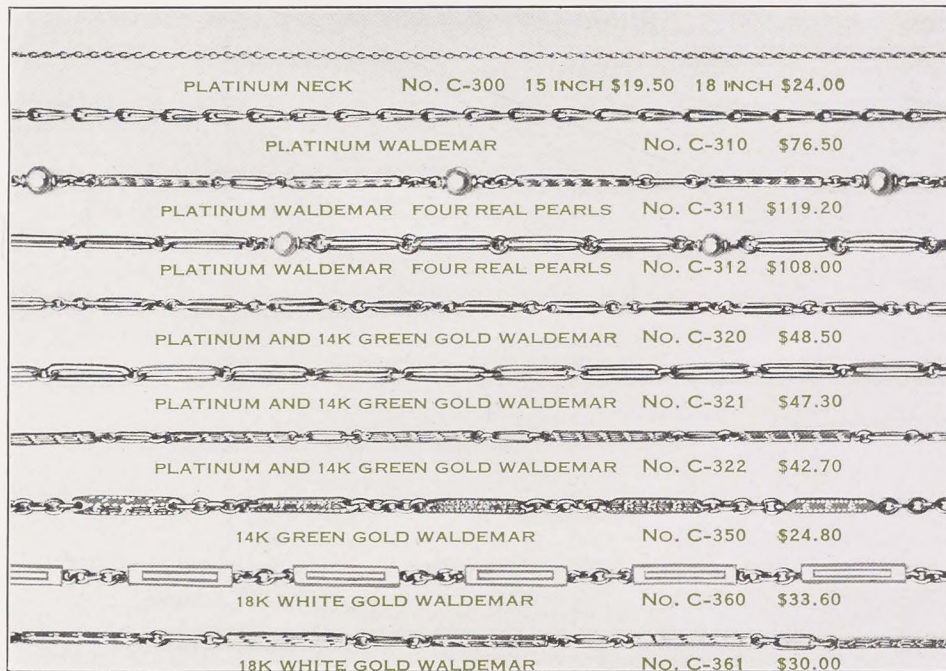 PLATINUM NECK No. C-300 15 INCH $19.50 18 INCH $24.00
PLATINUM WALDEMAR No. C-310 $76.50
PLATINUM WALDEMAR FOUR REAL PEARLS No. C-311 $119.20
PLATINUM WALDEMAR FOUR REAL PEARLS No. C-312 $108.00
PLATINUM AND 14K GREEN GOLD WALDEMAR No. C-320 $48.50
PLATINUM AND 14K GREEN GOLD WALDEMAR No. C-321 $47.30
PLATINUM AND 14K GREEN GOLD WALDEMAR No. C-322 $42.70
14K GREEN GOLD WALDEMAR No. C-350 $24.80
18K WHITE GOLD WALDEMAR No. C-360 $33.60
18K WHITE GOLD WALDEMAR No. C-361 $30.00